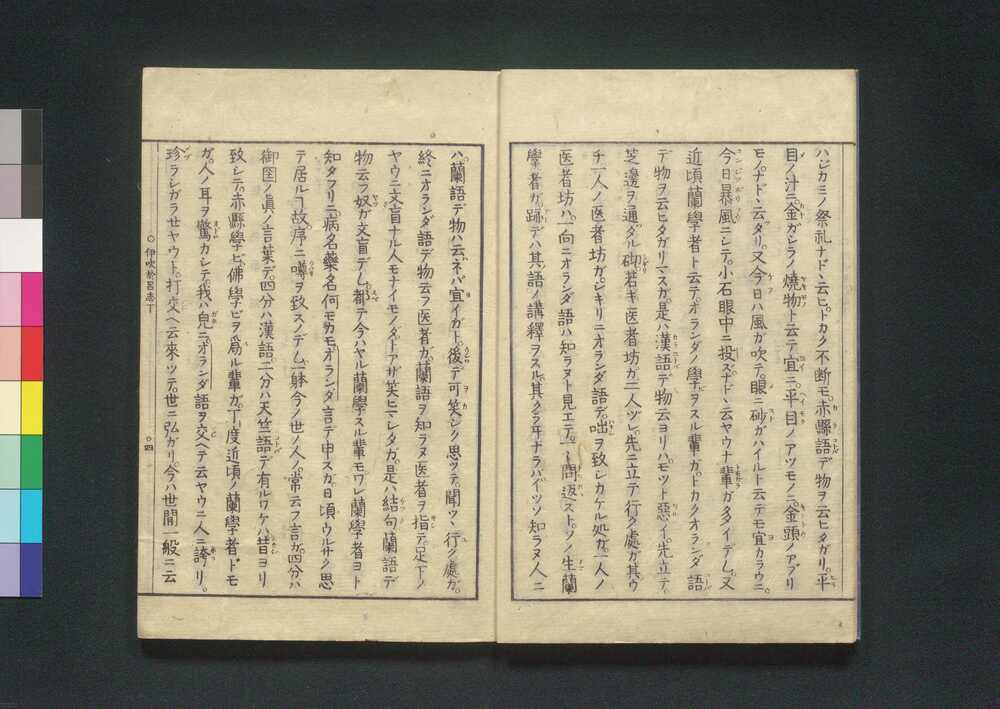 ハジカミノ祭礼ナドヽ云ヒ。トカク不断モ。赤縣語デ物ヲ云ヒタガリ。平
目ノ汁ニ。金ガシラノ燒物ト云テ宜ニ。平目ノアツモノニ。金頭ノアブリ
モノナドヽ云ダリ。又今日ハ風ガ吹テ。眼ニ砂ガハイルト云テモ宜カラウニ。
今日暴風ニシテ。小石眼中ニ投ズナドヽ云ヤウナ輩ガ多イデム。又
近頃蘭學者ト云テ。オランダノ學ヲスル輩ガ。トカクオランダ語
デ物ヲ云ヒタガリマスガ。是ハ漢語デ物云ヨリハ。モツト惡イ。先立テ
芝邊ヲ通ダル砌。若キ医者坊ガ二人ヅレ。先ニ立テ行ク處ガ。其ウ
チ一人ノ医者坊ガ。シキリニオランダ語デ。咄ヲ致シカケル処ガ。一人ノ
医者坊ハ。一向ニオランダ語ハ知ラヌト見エテ。一ト問返スト。ソノ生蘭
學者ガ。跡デハ其語ノ講釋ヲスル。其クラ井ナラバイツソ知ラヌ人ニ
ハ。蘭語デ物ハ云ハネバ宜イガト。後デ可笑シク思ツテ。聞ツヽ行ク處ガ。
終ニオランダ語デ物云フ医者ガ。蘭語ヲ知ラヌ医者ヲ指テ。足下ノ
ヤウニ文盲ナル人モナイモノダトアザ笑ヒマシタガ。是ハ結句蘭語デ
物云フ奴ガ文盲デム。都テ今ハヤル蘭學スル輩モ。ワレ蘭學者ヨト
知タフリニ。病名藥名何モカモ。オランダ言テ申スガ。日頃ウルサク思
テ居ルヿ故。序ニ噂ヲ致スノデム。一躰今ノ世ノ人ノ。常云フ言ガ。四分ハ
御国ノ眞ノ言葉デ。四分ハ漢語。二分ハ天竺語デ有ルワケハ。昔ヨリ
致シテ。赤縣學ビ。佛學ビヲ爲ル輩ガ。丁度近頃ノ蘭學者ドモ
ガ。人ノ耳ヲ驚カシテ。我ハ皃ニ。オランダ語ヲ交ヘテ云ヤウニ。人ニ誇リ。
珍ラシガラセヤウト。打交ヘ云來ツテ。世ニ弘ガリ。今ハ世間一般ニ云
伊吹於呂志下
○四